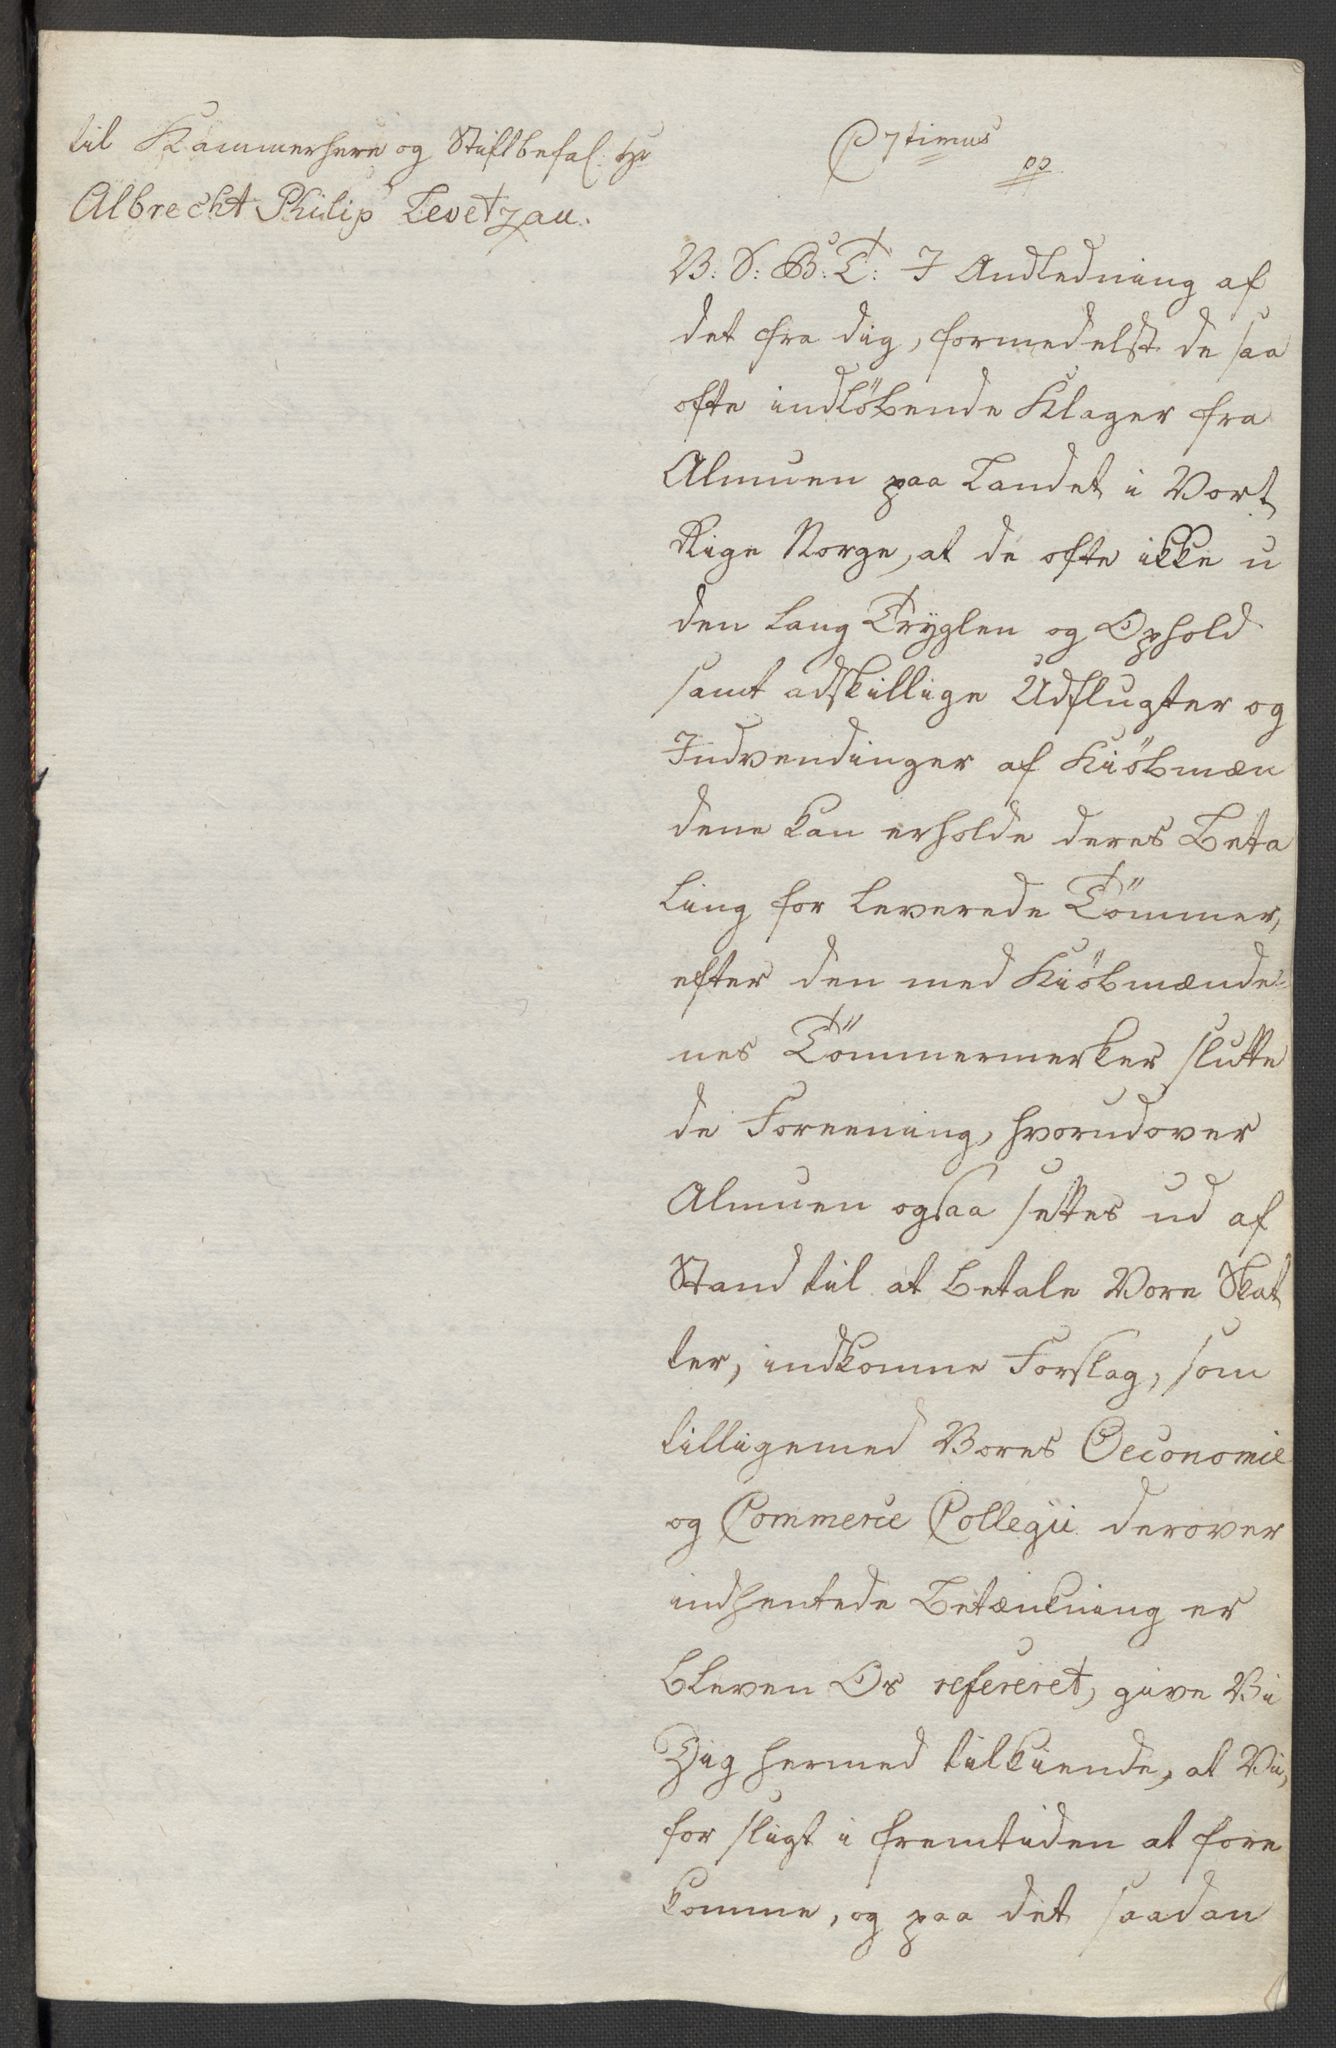 til Kammerherre og Stiftbefal: Hr
Albrecht Philip Levetzau.
C 7timus
pp.
V: S: G: B: T: I Andledning af
det fra dig, formedelst de saa
ofte indløbende Klager fra
Almuen paa Landet i Vort
Rige Norge, at de ofte ikke u
den lang Tryglen og Ophold
samt adskillige Udflugter og
Indvendinger af Kiöbmæn
dene kan erholde deres Beta
ling for leverede Tömmer,
efter den med Kiöbmænde-
nes Tömmermerker slutte
de Foreening, hvorudover
Almuen ogsaa settes ud af
Stand til at betale Vore Skat
ter, indkomne Forslag, som
tilligemed Vores Oeconomie
og Commerce Collegii derover
indhentede Betænkning er
bleven Os refereret, give Vi
Dig hermed tilkiende, at Vi,
for sligt i fremtiden at fore
komme, og paa det saadan